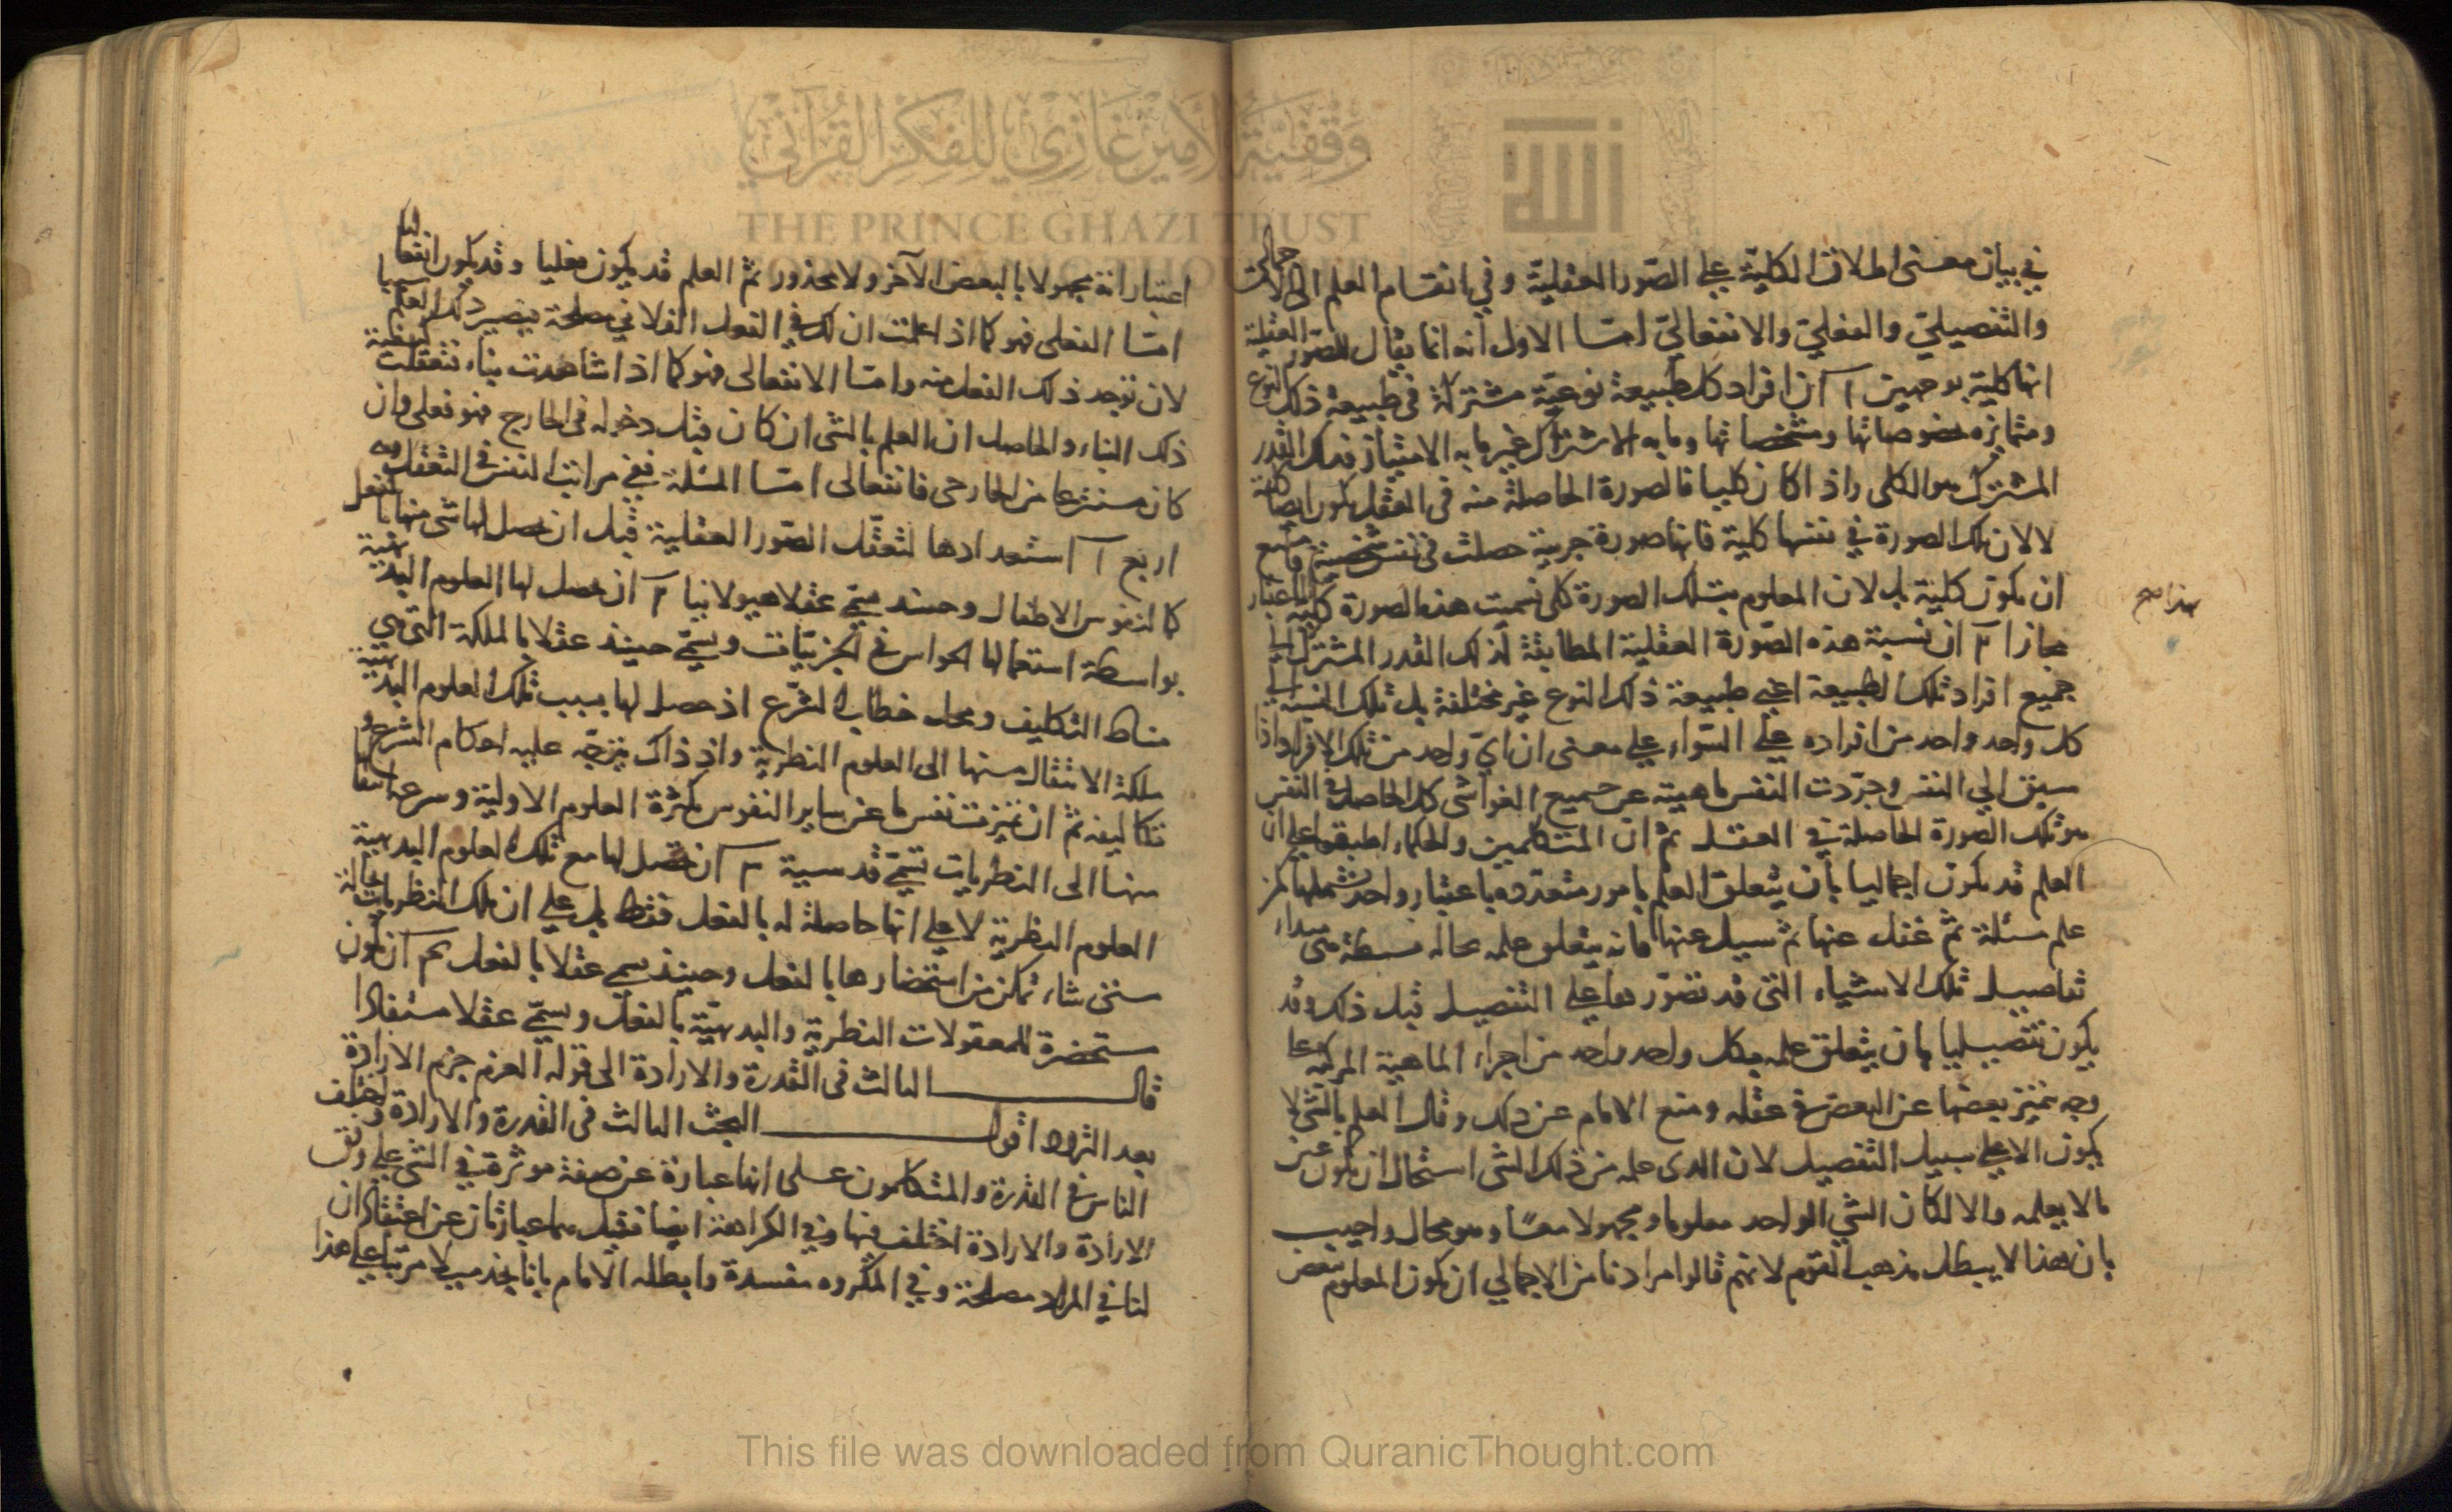 في بيان معنى اطلاق الكلية على الصور العقلية وفي انقسام العلم الى الاجمالي
والتفصيلي والفعلي والانفعالي امـا الاول انه انما يقال للصور العقلية
انها كلية بوجهين آ ان افراد كل طبيعة نوعية مشتركة في طبيعة ذلك النوع
ومتمايزه بخصوصياتها ومشخصاتها وما به الاشتراك غير ما به الامتياز فذلك القدر
المشترك هو الكلى واذا كان كليا فالصورة الحاصلة منه في العقل يكون ايضا كلية
لا لان تلك الصورة في نفسها كلية فانها صورة جزئية حصلت في نفس شخصية فامتنع
ان يكون كلية بل لان المعلوم بتلك الصورة كلى سميت هذه الصورة كلية بهذا الاعتبار
مجازا ٢ ان نسبة هذه الصورة العقلية المطابقة لذلك القدر المشترك الى
جميع افراد تلك الطبيعة اعني طبيعة ذلك النوع غير مختلفة بل تلك النسبة الى
كل واحد واحد من افراده على السواء على معنى ان اي واحد من تلك الافراد اذا
سبق الي النفس وجردت النفس ماهيته عن جميع الغواشى كل الحاصل في النفس
هو تلك الصورة الحاصلة في العقل ثم ان المتكلمين والحكماء اطبقوا على ان
العلم قد يكون اجماليا بأن يتعلق العلم بامور متعدده باعتبار واحد شملها كمن
علم مسئلة ثم غفل عنها ثم سيل عنها فانه يتعلق علمه بحاله بسيطة هي مبداء
تفاصيل تلك الاشياء التى قد تصور ها على التفصيل قبل ذلك وقد
يكون تفصيليا بان يتعلق علمه بكل واحد واحد من اجزاء الماهية المركبة على
وجه يتميز بعضها عن البعض في عقله ومنع الامام عن ذلك وقال العلم بالشي لا
يكون الا على سبيل التفصيل لان الذى علمه من ذلك الشى استحال ان يكون عين
مالا يعلمه والا لكان الشي الواحد معلوما ومجهولا معـا وهو محال واجيب
بان هذا لا يبطل مذهب القوم لانهم قالوا مرادنا من الاجمالي ان يكون المعلوم ببعض
اعتباراته مجهولا بالبعض الآخر ولا محذور ثم العلم قد يكون فعليا وقد يكون انفعاليا
امـا الفعلى فهو كما اذا علمت ان لك في الفعل الفلاني مصلحة فيصير ذلك العلم سببا
لان توجد ذلك الفعل منه وامـا الانفعالى فهو كما اذا شاهدت بناء فتعقلت
ذلك البناء والحاصل ان العلم بالشى ان كان قبل دخوله في الخارج فهو فعلى وان
كان منتزعا من الخارجى فانفعالى امـا المسئلة ففي مراتب النفس في التعقل وهي
اربع آ استعدادها لتعقل الصور العقلية قبل ان يحصل لها شى منها بالفعل
كما لنفوس الاطفال وحينئذ يسمى عقلا هيولانيا ٢ ان يحصل لها العلوم البديهية
بواسطة استعمالها الحواس في الجزئيات ويسمى حينئذ عقلا بالملكة التى هي
مناط التكليف ومحل خطاب الشرع اذ حصل لها بسبب تلك العلوم البديهية
ملكة الانتقال منها الى العلوم النظرية واذ ذاك يتوجه عليه احكام الشرع و
تكاليفه ثم ان تميزت نفس ما عن ساير النفوس بكثرة العلوم الاولية وسرعة انتقالها
منها الى النظريات تسمى قدسية ٣ ان يحصل لها مع تلك العلوم البديهية
العلوم النظرية لا على انها حاصلة له بالفعل فقط بل على ان تلك النظريات بحالة
متى شاء تمكن من استحضارها بالفعل وحينئذ يسمى عقلا بالفعل ٤ ان يكون
مستحضرة للمعقولات النظرية والبديهية بالفعل ويسمى عقلا مستفادا
قال الثالث في القدرة والارادة الى قوله العزم جزم الارادة
بعد التردد اقول البحث الثالث في القدرة والارادة واختلف
الناس في القدرة والمتكلمون على انها عبارة عن صفة موثرة في الشي على وفق
الارادة والارادة اختلف فيها وفي الكراهة ايضا فقيل هما عبارتان عن اعتقاد ان
لنا في المراد مصلحة وفي المكروه مفسدة وابطله الامام بانا نجد ميلا مرتبا على هذا
THE PRINCE GHAZI TRUST
This file was downloaded from QuranicThought.com